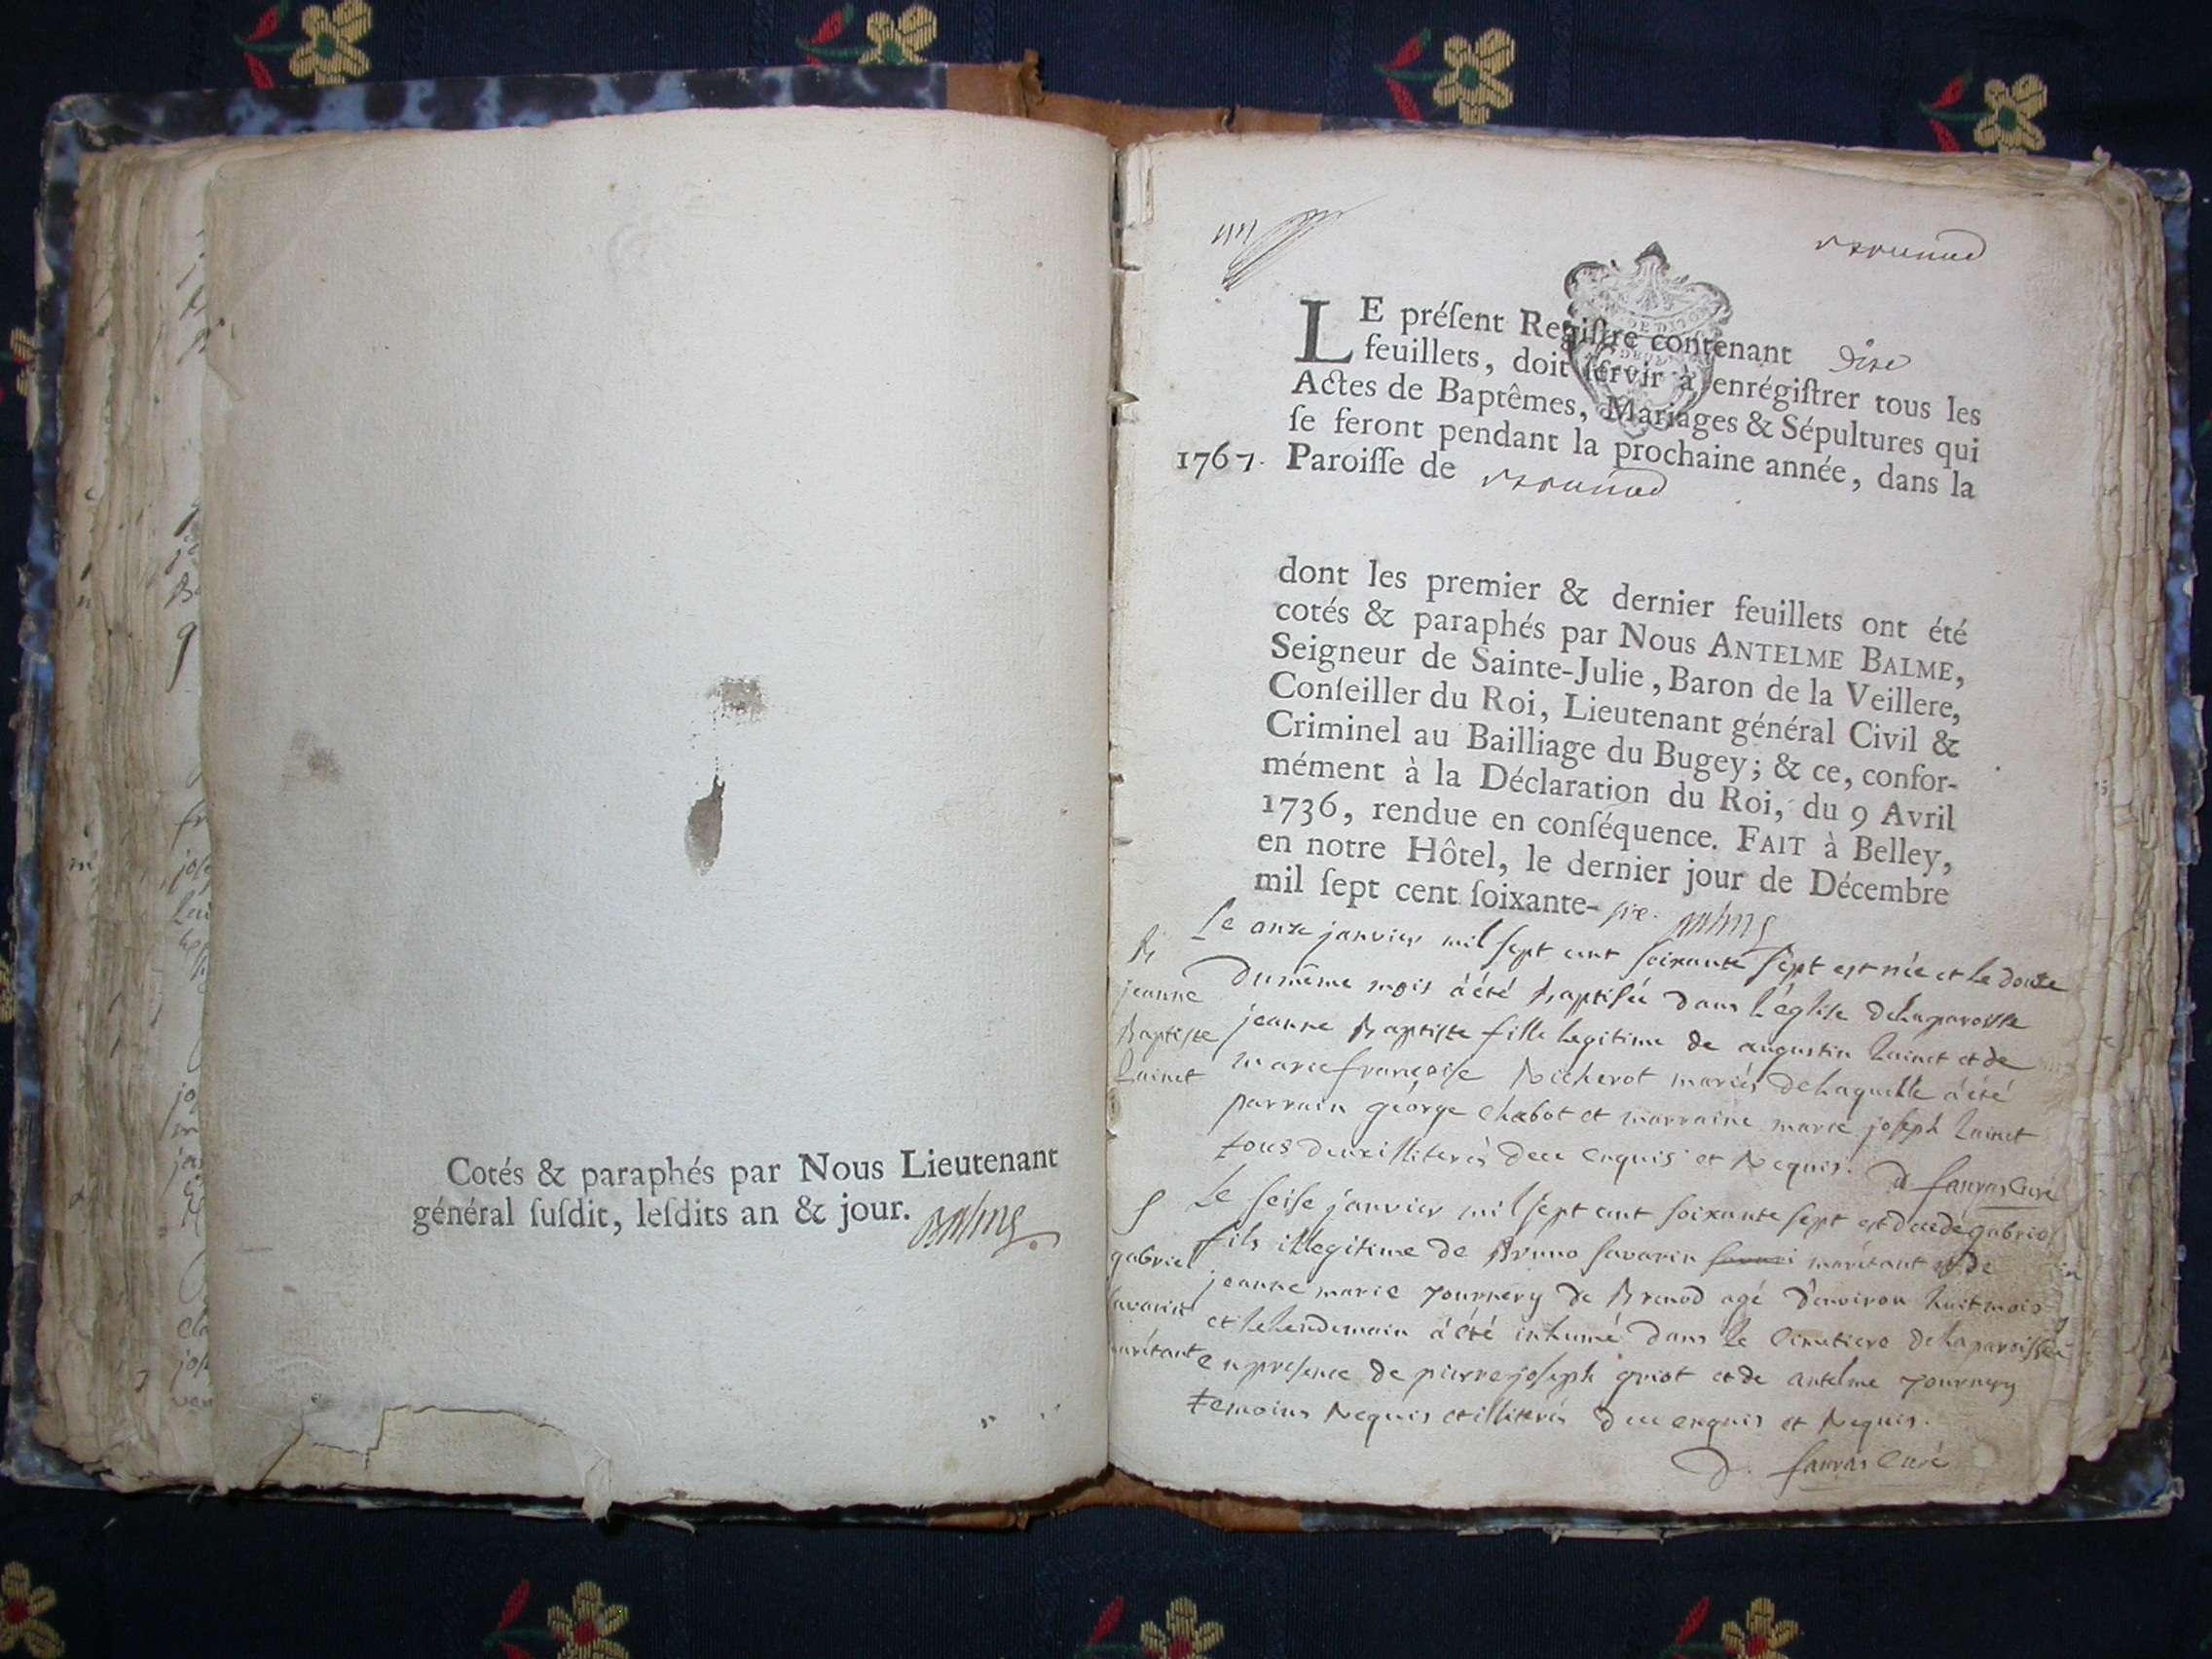 Cotés & paraphés par Nous Lieutenant
général ſuſdit, leſdits an & jour.
LE préſent Regiſtre contenant dixe
feuillets, doit ſervir à enrégiſtrer tous les
Actes de Baptêmes, Mariages & Sépultures qui
ſe feront pendant la prochaine année, dans la
1767. Paroiſſe de
dont les premier & dernier feuillets ont été
cotés & paraphés par Nous ANTELME BALME,
Seigneur de Sainte-Julie, Baron de la Veillere,
Conſeiller du Roi, Lieutenant général Civil &
Criminel au Bailliage du Bugey; & ce, confor-
mément à la Déclaration du Roi, du 9 Avril
1736, rendue en conſéquence. FAIT à Belley,
en notre Hôtel, le dernier jour de Décembre
mil ſept cent ſoixante-ſix.
Le onze janvier mil sept cent soixante sept est née et le douze
du même mois à été baptisée dans l'église de la paroisse
jeanne Baptiste fille legitime de augustin Lainet et de
marie françoise Richerot mariés de laquelle à été
parrain george Chabot et marraine marie joseph Lainet
tous deux illiterés de ce enquis et Requis. D favras Curé
B
jeanne
Baptiste
Lainet
Le seise janvier mil sept cent soixante sept est decede gabriel
fils illegitime de Bruno savarin maritant et de
jeanne marie journery de Brenod agé d'environ huit mois
et le lendemain à été inhumé dans le Cimetiere de la paroisse
en presence de pierre joseph griot et de antelme journery
temoins Requis et illiterés de ce enquis et Requis.
D. favras Curé
S
gabriel
savarin
maritant